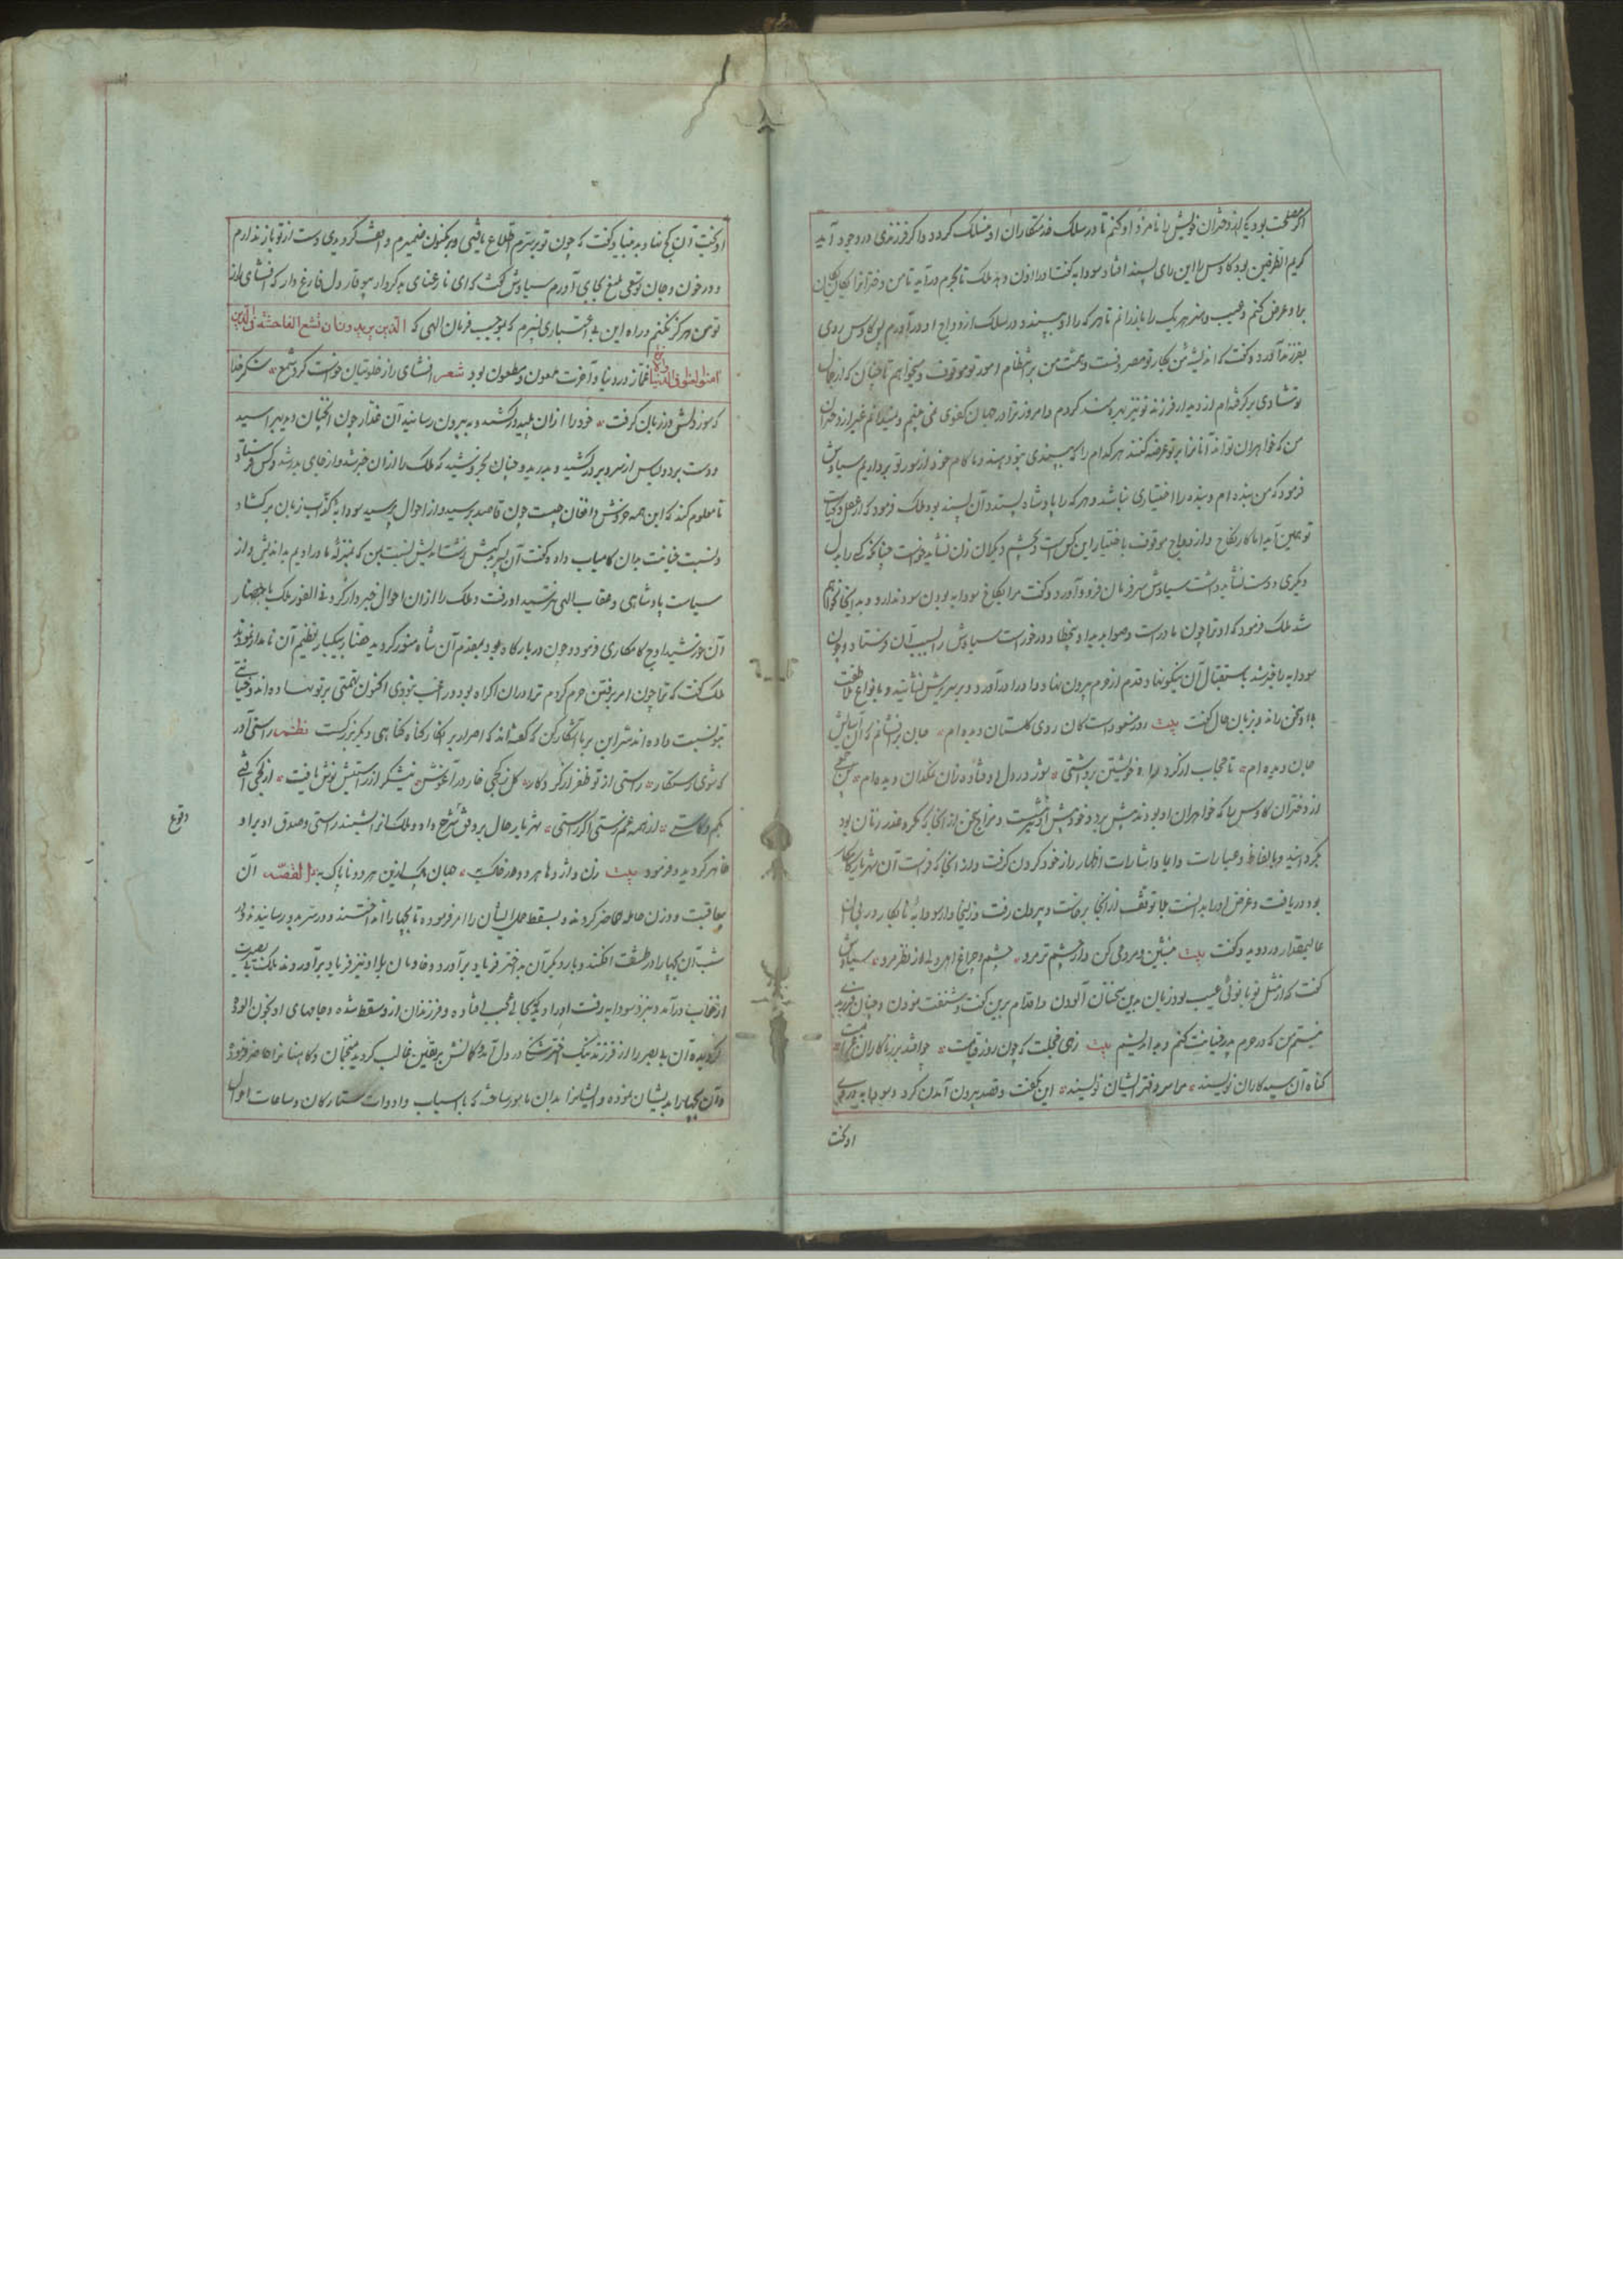 اگر مصلحت بود یکی از دختران خویش را نامزد او کنم تا در سلک خدمتکاران او منسلک گردد و اگر فرزندی در وجود آید
کریم الطرفین بود کاوس را این رای پسند افتاد سودابه گفت او را اذن دهد ملک تا بحرم درآید تا من دخترانرا یکان یکان
برو عرض کنم و عیب و هنر هر یک را باز رانم تا هر که را او پسندد در سلک ازدواج او درآورم کاوس روی
بفرزند آورد و گفت که اندیشه من بکار تو مصروفست و همت من بر انتظام امور تو موقوف و میخواهم تا چنان که از جمال
تو شادی برگرفته‌ام از دیدار فرزند تو نیز بهره‌مند گردم و امروز ترا در جهان کفوی نمی‌بینم و نمیدانم غیر از دختران
من که خواهران تواند آنانرا بر تو عرضه کنند هر کدام را که پسندی بتو دهند و ما کام خود از سور تو برداریم سیاوش
فرمود که من بنده‌ام و بنده را اختیاری نباشد و هر که را پادشاه پسندد آن پسند بود ملک فرمود که از عقل و کیاست
تو همین آید اما کار نکاح و ازدواج موقوف باختیار این کس است و بچشم دیگران زن نشاید خواست چنانکه کسی را بدل
دیگری دوست نشاید داشت سیاوش سر فرمان فرود آورد و گفت مرا بکاخ سودابه بودن سود ندارد و بدانجا نخواهم
شد ملک فرمود که او ترا چون مادر است سیاوش را بسبب آن فرستاد و چون
سودابه را خبر شد باستقبال آن نیکونهاد قدم از حرم بیرون نهاد و او را درآورد و بر سریرش نشانید و بانواع ملاطفت
با او سخن راند و بزبان حال گفت بیت روز مسعود است کان روی گلستان دیده‌ام * جان برافشانم که آن آسایش
جان دیده‌ام * تا حجاب از گرد ماه خویشتن برداشتی * شور در دل اوفتاده زان نمکدان دیده‌ام *
از دختران کاوس را که خواهران او بودند پیش برد و خود پیش او بنشست و مزاج سخن از آنجا که مکر و غدر زنان بود
بگردانید و بالفاظ و عبارات و ایما و اشارات اظهار راز خود کردن گرفت و از آنجا که فراست آن شهریار کامکار
بود دریافت و غرض او را بدانست بلاتوقف از آنجا برخاست و بیرون رفت و زلیخاوار سودابه نابکار در پی آن
عالیمقدار در دوید و گفت بیت بنشین و مردمی کن و از چشم تر مرو * چشم و چراغ اهل دلی از نظر مرو * سیاوش
گفت که از مثل تو بانوئی عیب بود زبان بدین سخنان آلودن و اقدام برین گفت و شنفت نمودن و چنان فرزندی
نیستم من که در حرم پدر خیانت کنم و بد اندیشم بیت زهی خجلت که چون روز قیامت * خوانند بر زناکاران غرامت *
گناه آن سیه‌کاران نویسند * مرا سردفتر ایشان نویسند * این بگفت و قصد بیرون آمدن کرد و سودابه در پی
او گفت
او گفت آن کج نهاد بدبنیاد گفت که چون تو بر سرم اطلاع یافتی و بر مکنون ضمیرم واقف گردیدی دست از تو باز ندارم
و در خون و جان تو سعی بلیغ بجای آورم سیاوش گفت که ای نارعنای بدکردار دل فارغ دار که افشای راز
تو من هرگز نکنم و راه این بی‌اعتباری نسپرم که بموجب فرمان الهی که الذین یریدون ان تشیع الفاحشة فی الذین
آمنوا لعنوا فی الدنیا والآخرة غماز در دنیا و آخرت ملعون و مطعون بود شعر افشای راز خلوتیان خواست کرد شمع * شکر خدا
که سوز دلش در زبان گرفت * خود را از آن پلید درکشید و به بیرون رسانید آن غدار چون آنچنان دید بهراسید
و دست برد و لباس از سر و بر درکشید و بدرید و چنان بخروشید که ملک را از آن خبر شد و از جای بدر شد و کس فرستاد
تا معلوم کند که این همه خروش و افغان چیست چون قاصد برسید و از احوال پرسید سودابه کذاب زبان برگشاد
و نسبت خیانت بدان کامیاب داده گفت آن پسر بدکیش زشت اندیش نسبت بمن که بمنزله مادر اویم بد اندیش و از
سیاست پادشاهی و عقاب الهی نترسید او رفت و ملک را از آن احوال خبردار کرد فی الفور ملک باحضار
آن خورشید اوج کامکاری فرمود و چون دربار گاه وجود بمقدم آن شاه منور گردید حضار بیکبار بتعظیم آن نامدار
ملک گفت که ترا چون امر برفتن حرم کردم ترا در آن اکراه بود و رغبت ننمودی اکنون تهمتی بر تو نهاده‌اند و خیانتی
بتو نسبت داده‌اند سر این بر ما آشکار کن که گفته‌اند که اصرار بر انکار گناه گناهی دیگر بزرگست نظم راستی آور
که شوی رستگار * راستی از تو ظفر از کردگار * گل ز کجی خار در آغوش * نیشکر از راستیش نوش یافت * از کجی افتی
بکم و کاستی * از همه غم رستی اگر راستی * شهریار حال بر وفق شرح داد و ملک انوشیند راستی و صدق او بر او
ظاهر گردید و فرمود بیت زن و اژدها هر دو در خاک به * جهان پاک ازین هر دو ناپاک به القصه آن
بعاقبت دو زن حامله حاضر کردند و بسقط حمل ایشان را امر فرموده تا بچها را انداختند و در سر بدو رسانیدند و در
شب آن بچها را در طشت افکند و بار دیگر آن بداختر فریاد برآورد و خادمان بلااو نیز فریاد برآوردند ملک
از خواب درآمد و بنزد سودابه رفت او را دید بحالی عجب افتاده و فرزندان ازو سقط شده و جامهای او بخون آلوده
گردیده آن بی‌بصر را از فرزند نیک اختر شک در دل آمد و گمانش بر یقین غالب گردید منجمان و کاهنانرا حاضر فرمود
و آن بچها را بدیشان نموده و ایشانرا بدان مامور ساخت که باسباب و ادوات ستارگان و ساعات احوال
وقوع